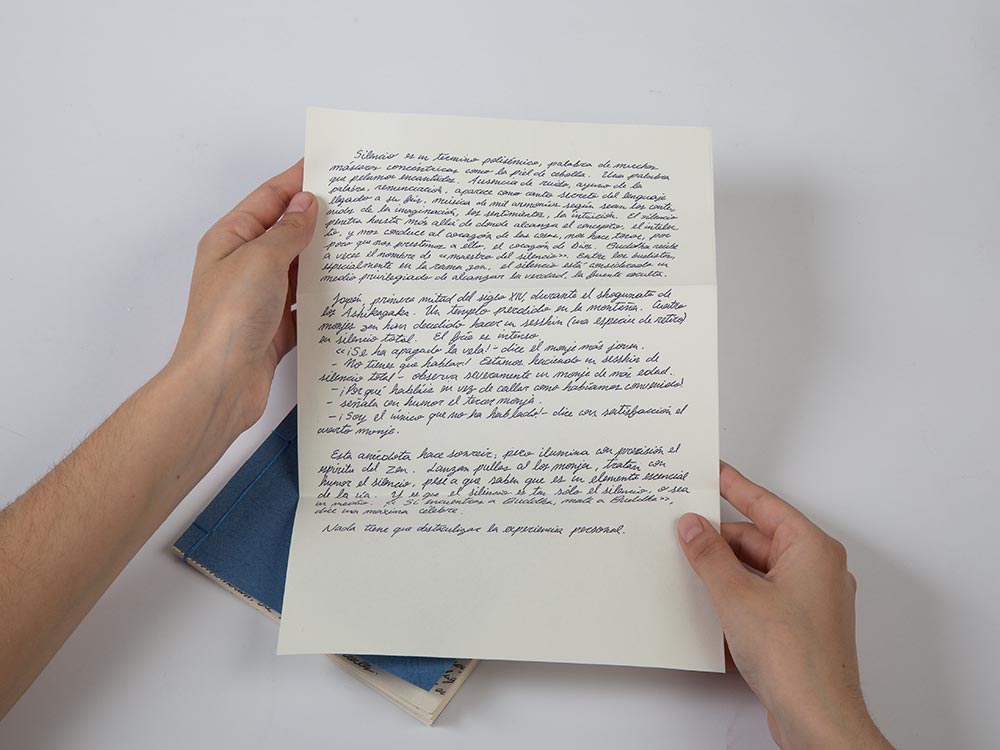 Silencio es un término polisémico, palabra de muchas
máscaras concéntricas como la piel de cebolla. Una palabra
que pelamos encantados. Ausencia de ruido, ayuno de la
palabra, renunciación, aparece como canto secreto del lenguaje
llegado a su fin, música de mil armonías según sean los conte-
nidos de la imaginación, los sentimientos, la intuición. El silencio
penetra hasta más allá de donde alcanza el concepto, el intelec-
to, y nos conduce al corazón de las cosas, nos hace tocar, por
poco que nos prestemos a ello, el corazón de Dios. Buddha recibe
a veces el nombre de «maestro del silencio». Entre los budistas,
especialmente en la rama zen, el silencio está considerado un
medio privilegiado de alcanzar la verdad, la fuente oculta.
Japón, primera mitad del siglo XIV, durante el shogunato de
los Ashikagaka. Un templo perdido en la montaña. Cuatro
monjes zen han decidido hacer un sesshin (una especie de retiro)
en silencio total. El frío es intenso
«¡Se ha apagado la vela! - dice el monje más joven.
- No tienes que hablar! Estamos haciendo un sesshin de
silencio total - observa severamente un monje de más edad.
- ¡Por qué habláis en vez de callar como habíamos convenido!
- señala con humor el tercer monje.
- ¡Soy el único que no ha hablado! - dice con satisfacción el
cuarto monje.
Esta anécdota hace sonreir, pero ilumina con precisión el
espíritu del Zen. Lanzan pullas al los monjes, tratan con
humor el silencio, pese a que saben que es un elemento esencial
de la vía. Y es que el silencio es tan sólo el silencio, o sea
un medio. « Si encuentras a Buddha, mata a Buddha»,
dice una máxima célebre.
Nada tiene que obstaculizar la experiencia personal.